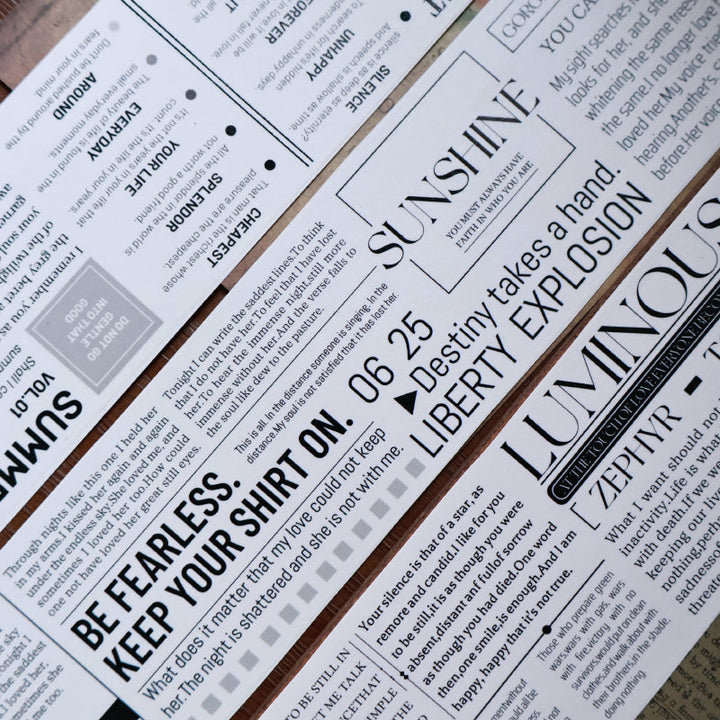 SILENCE
silence is as deep as eternity?
And speech is shallow as time.
UNHAPPY
To search for life's hidden
tenderness in unhappy days.
FOREVER
never fall in love.
CHEAPEST
That man is the richest whose
pleasure are the cheapest.
SPLENDOR
All the splendor in the world is
not worth a good friend.
YOUR LIFE
It's not the years in your life that
count. It's the life in your years
EVERYDAY
The beauty of life is found in the
small everyday moments.
AROUND
Don't be pushed around by the
fears in your mind.
I remember you as
the grey beret a
of the twilight
your soul
DO NOT GO
GENTLE
INTO THAT
GOOD
VOL.01
Through nights like this one I held her
in my arms.I kissed her again and again
under the endless sky.She loved me, and
sometimes I loved her too.How could
one not have loved her great still eyes.
Tonight I can write the saddest lines.To think
that I do not have her.To feel that I have lost
her.To hear the immense night,still more
immense without her.And the verse falls to
the soul like dew to the pasture.
This is all. In the distance someone is singing. In the
distance.My soul is not satisfied that it has lost her.
BE FEARLESS.
KEEP YOUR SHIRT ON.
06 25
What does it matter that my love could not keep
her.The night is shattered and she is not with me.
SUNSHINE
YOU MUST ALWAYS HAVE
FAITH IN WHO YOU ARE
Destiny takes a hand.
LIBERTY EXPLOSION
YOU CA
My sight searches
looks for her, and she
whitening the same trees
the same.I no longer love
loved her.My voice
hearing.Another's
before.Her
LUMINOUS
AT THE TOUCH OF LOVE EVERYONE BEC
ZEPHYR
What I want should no
inactivity.Life is wha
with death.If we we
keeping our liv
nothing,perh
sadness
threat
Your silence is that of a star, as
remore and candid.I like for you
to be still,it is as though you were
absent,distant and full of sorrow
as though you had died.One word
then,one smile,is enough.And I am
happy, happy that it's not true.
Those who prepare green
wars,wars with gas, wars
with fire,victory with no
survivors,would put on clean
clothes,and walk about with
their brothers,in the shade,
doing nothing